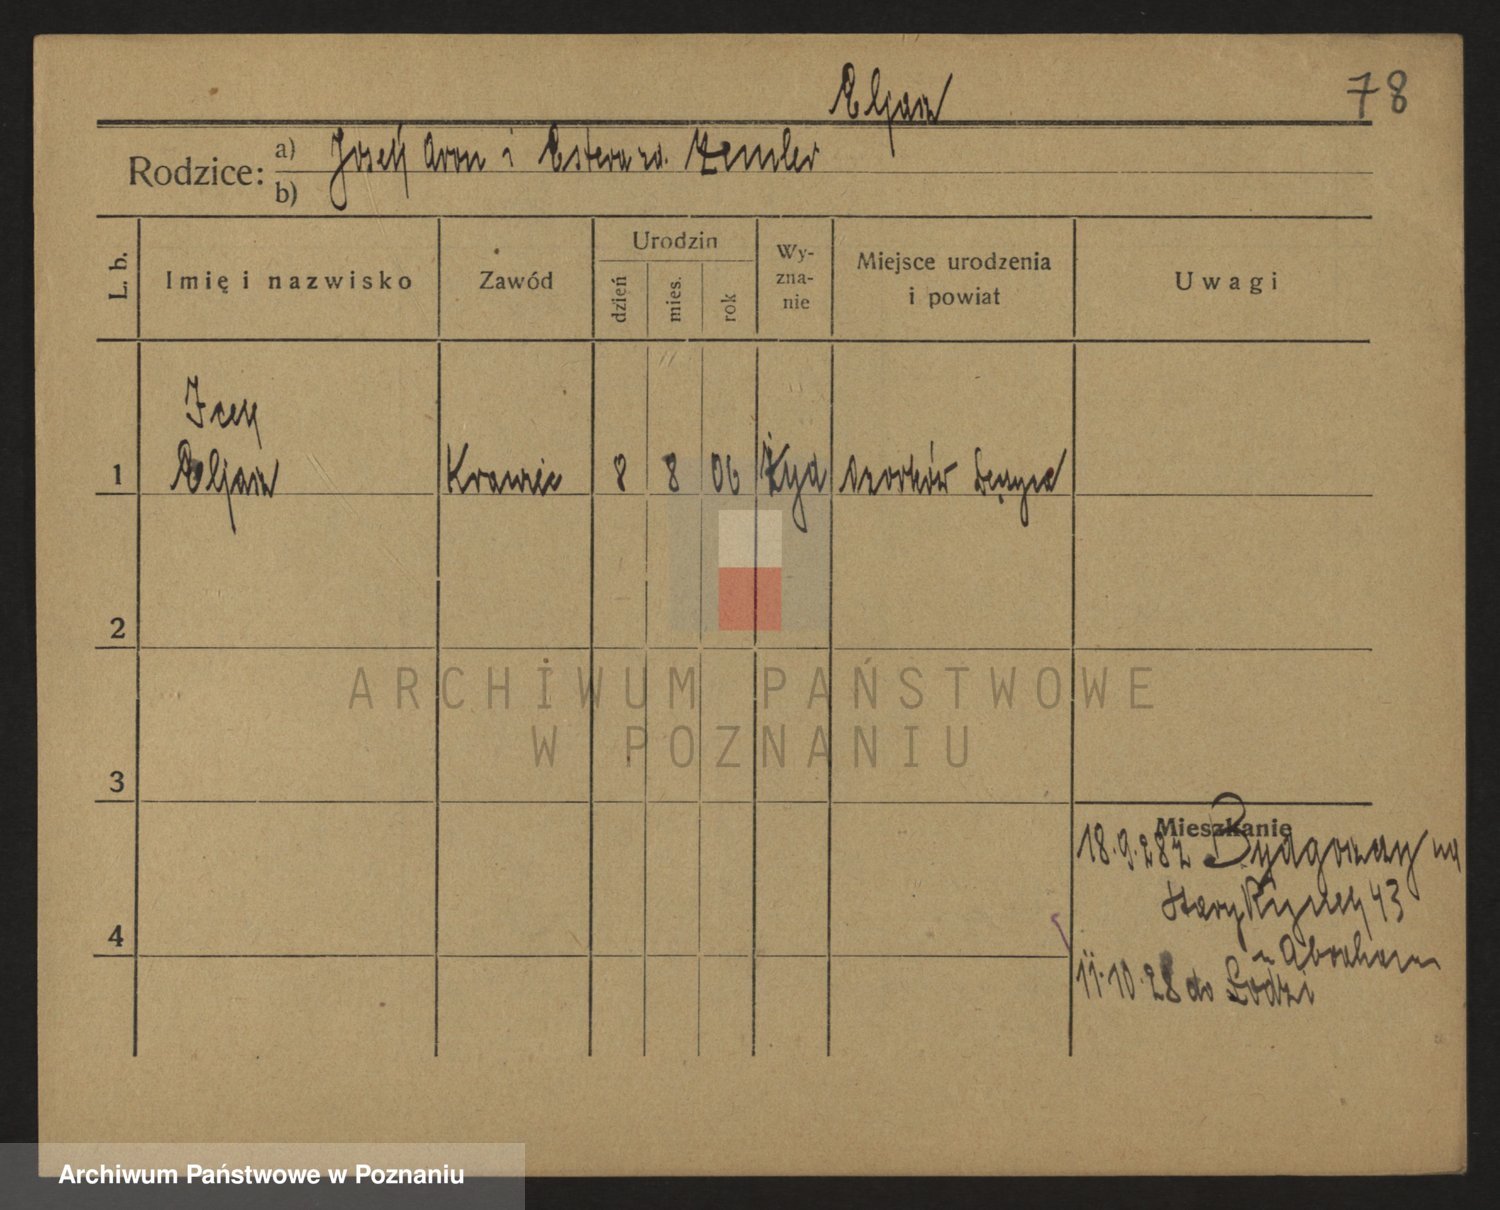 Eljasz
78
Rodzice: a) Josek Aron i Estera zd. Zemler
b)
L. b.
Imię i nazwisko
Zawód
Urodzin
dzień
mies.
rok
Wy-
zna-
nie
Miejsce urodzenia
i powiat
Uwagi
Icek
1 Eljasz Krawiec 8 8 06 Żyd Ozorków Łęczyca
2
ARCHIWUM PAŃSTWOWE
W POZNANIU
3
Mieszkanie
18.9.28 z Bydgoszczy na
Stary Rynek 43
4
u Abraham
11.10.28 do Łodzi
Archiwum Państwowe w Poznaniu